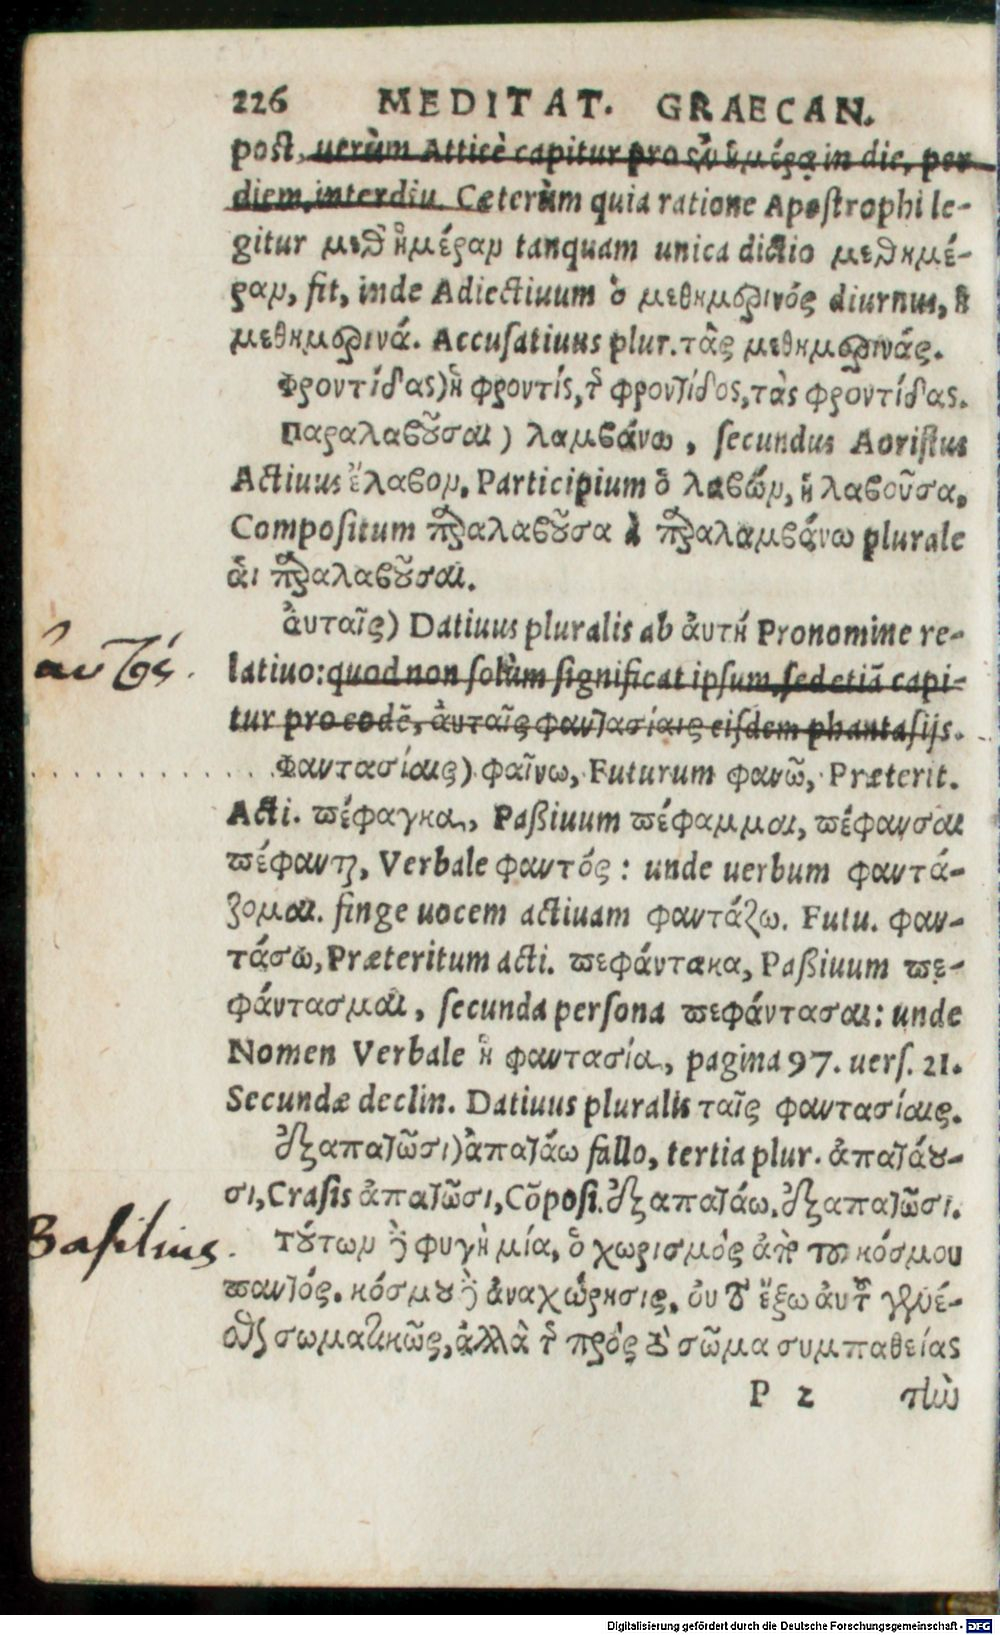 226 MEDITAT. GRAECAN.
post, uerùm Atticè capitur pro σὺν ἡμέρᾳ in die, per
diem, interdiu. Cæterùm quia ratione Apostrophi le-
gitur μεθ' ἡμέραν tanquam unica dictio μεθημέ-
ραν, fit, inde Adiectiuum ὁ μεθημερινός diurnus, ἡ
μεθημερινά. Accusatiuus plur. τὰς μεθημερινάς.
Φροντίδας) ἡ φροντίς, τῆ φροντίδος, τὰς φροντίδας.
Παραλαβοῦσαι) λαμβάνω, secundus Aoristus
Actiuus ἔλαβον, Participium ὁ λαβών, ἡ λαβοῦσα,
Compositum παραλαβοῦσα à παραλαμβάνω plurale
αἱ παραλαβοῦσαι.
ἀυταῖς) Datiuus pluralis ab ἀυτή Pronomine re-
ἀυτός.
latiuo: quod non solùm significat ipsum, sed etiā capi-
tur pro eodē, ἀυταῖς φαντασίαις eisdem phantasijs.
Φαντασίαις) φαῖνω, Futurum φανῶ, Præterit.
Acti. πέφαγκα, Paßiuum πέφαμμαι, πέφανσαι
πέφανται, Verbale φαντός: unde uerbum φαντά-
ζομαι. finge uocem actiuam φαντάζω. Futu. φαν-
τάσω, Præteritum acti. πεφάντακα, Paßiuum πε-
φάντασμαι, secunda persona πεφάντασαι: unde
Nomen Verbale ἡ φαντασία, pagina 97. uers. 21.
Secundæ declin. Datiuus pluralis ταῖς φαντασίαις.
ἐξαπατῶσι) ἀπατάω fallo, tertia plur. ἀπατάου-
σι, Crasis ἀπατῶσι, Cōposi. ἐξαπατάω. ἐξαπατῶσι.
Basilius.
τούτων ἢ φυγὴ μία, ὁ χωρισμὸς ἀπὸ τοῦ κόσμου
παντός. κόσμου ἢ ἀναχώρησις, οὐ τὸ ἔξω ἀυτοῦ γενέ-
σθαι σωματικῶς, ἀλλὰ τῆ πρὸς τὸ σῶμα συμπαθείας
P 2 τὴν
Digitalisierung gefördert durch die Deutsche Forschungsgemeinschaft - DFG